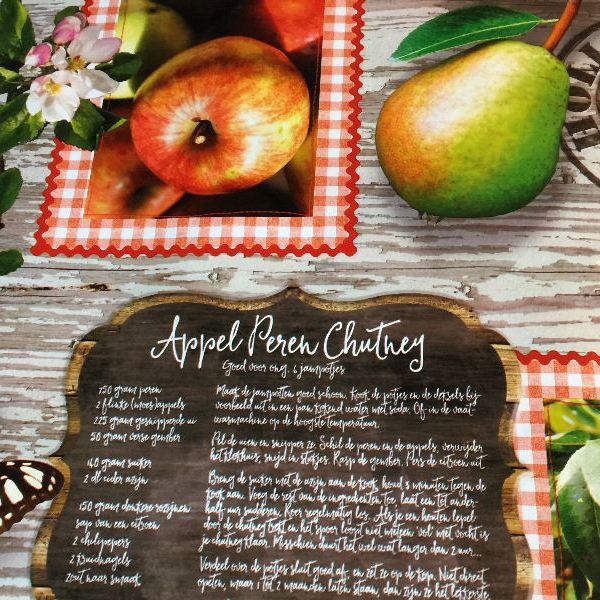 Appel Peren Chutney
Goed voor ong. 6 jampotjes
750 gram peren
2 flinke (moes)appels
225 gram gesnipperde ui
50 gram verse gember
160 gram suiker
2 dl cider azijn
150 gram donkere rozijnen
sap van een citroen
2 chilipepers
2 kruidnagels
zout naar smaak
Maak de jampotten goed schoon. Kook de potjes en de deksels bij
voorbeeld uit in een pan kokend water met soda. Of in de vaat-
wasmachine op de hoogste temperatuur.
Pel de uien en snipper ze. Schil de peren en de appels, verwijder
het klokhuis, snijd in stukjes. Rasp de gember. Pers de citroen uit.
Breng de suiker met de azijn aan de kook, houd 5 minuten tegen de
kook aan. Voeg de rest van de ingrediënten toe, laat een tot ander-
half uur sudderen. Roer regelmatig los. Als je een houten lepel
door de chutney trekt en het spoor loopt niet meteen vol met vocht is
je chutney klaar. Misschien duurt het wel wat langer dan 2 uur...
Verdeel over de potjes sluit goed af en zet ze op de kop. Niet direct
opeten, maar 1 tot 2 maanden laten staan, dan zijn ze het lekkerste